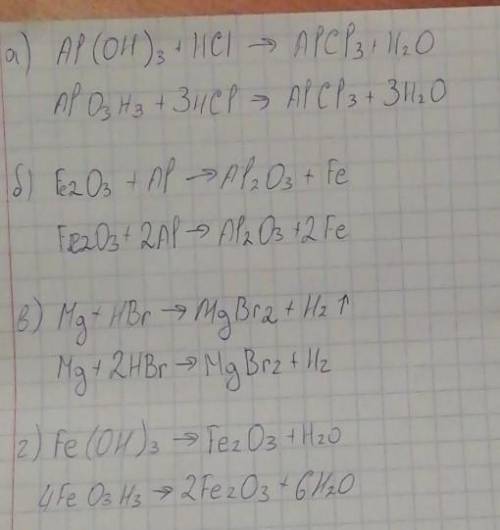 а) Al(OH)3 + HCl → AlCl3 + H2O
AlO3H3 + 3HCl → AlCl3 + 3H2O
б) Fe2O3 + Al → Al2O3 + Fe
Fe2O3 + 2Al → Al2O3 + 2Fe
в) Mg + HBr → MgBr2 + H2↑
Mg + 2HBr → MgBr2 + H2
г) Fe(OH)3 → Fe2O3 + H2O
4FeO3H3 → 2Fe2O3 + 6H2O